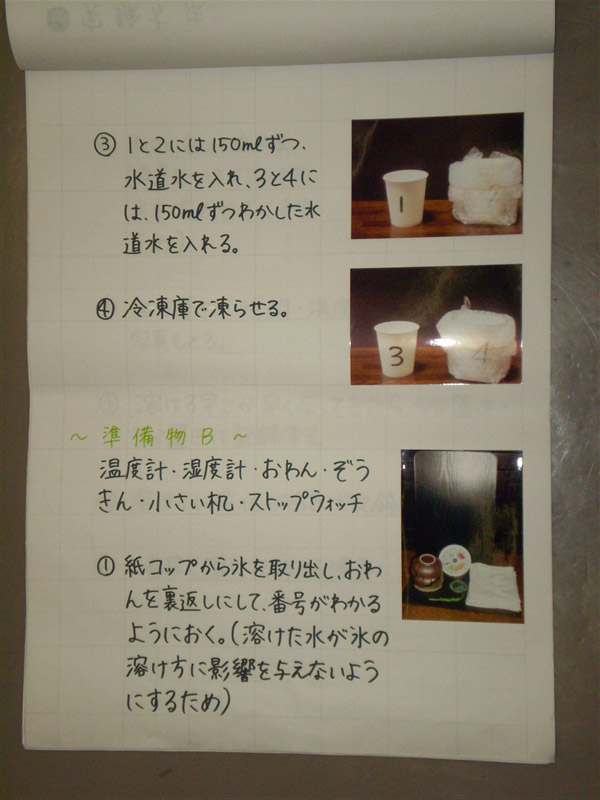 ③ 1と2には150mlずつ、
水道水を入れ、3と4に
は、150mlずつわかした水
道水を入れる。
1
④ 冷凍庫で凍らせる。
3
4
～準備物B～
温度計・湿度計・おわん・ぞう
きん・小さい机・ストップウォッチ
① 紙コップから氷を取り出し、おわ
んを裏返しにして、番号がわかる
ようにおく。(溶けた水が氷の
溶け方に影響を与えないよう
にするため)